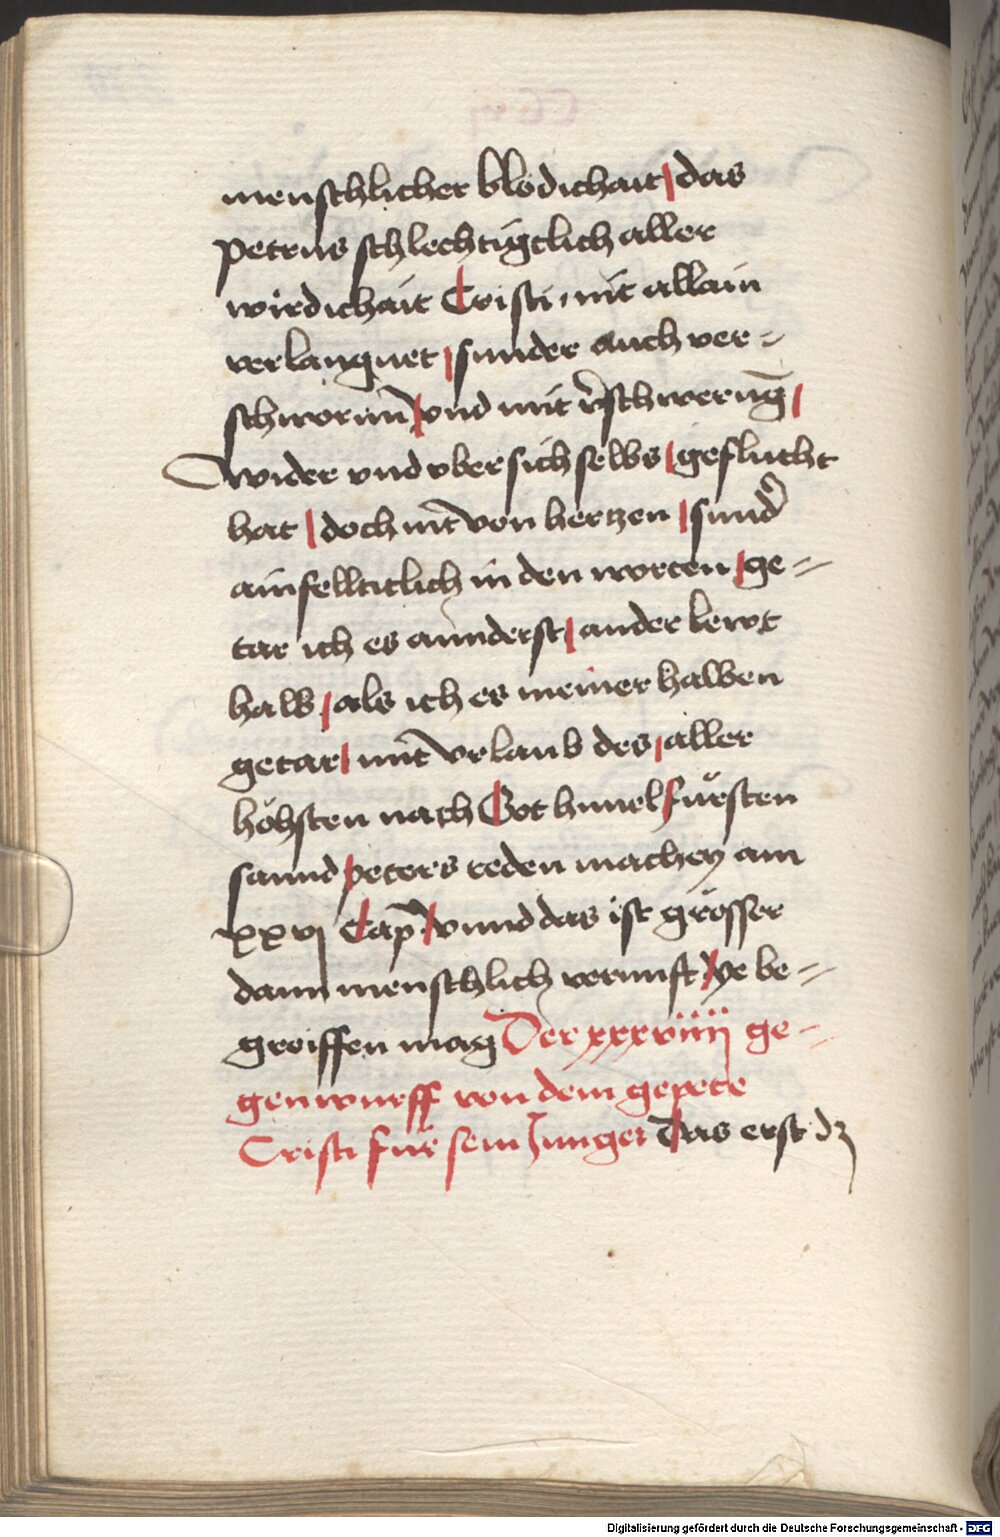 menschlicher blödichait / das
petrus schlechtigclich aller
wirdichait Cristi nit allain
verlaugnet / sunder auch ver=
schworn̄ / vnd mit v̾schwerūg /
wider vnd vber sich selbs / geflucht
hat / doch nit̄ von hertzen / sund̾
ainfellticlich in den worten / ge=
tar ich es annderst / ander lewt
halb / als ich es meiner halben
getar / mit̄ vrlaub des / aller
höhsten nach Got himel fürsten
sannd peters reden machen am
xxvj Cap̄ / vnnd das ist grösser
dann menschlich vernunft / ye be=
greiffen mag Der xxxviiij ge=
genwurff von dem gepete
Cristi für sein Junger Das erst dz
Digitalisierung gefördert durch die Deutsche Forschungsgemeinschaft - DFG